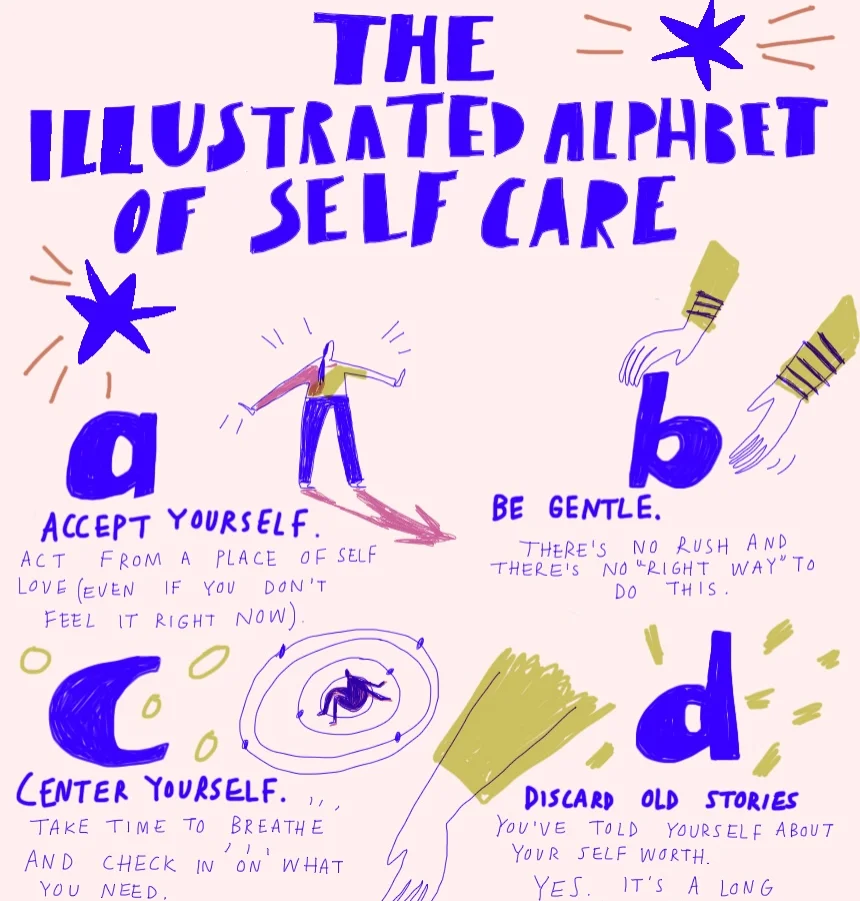 THE
ILLUSTRATED ALPHBET
OF SELF CARE
a
ACCEPT YOURSELF.
ACT FROM A PLACE OF SELF
LOVE (EVEN IF YOU DON'T
FEEL IT RIGHT NOW).
b
BE GENTLE.
THERE'S NO RUSH AND
THERE'S NO "RIGHT WAY" TO
DO THIS.
c
CENTER YOURSELF.
TAKE TIME TO BREATHE
AND CHECK IN ON WHAT
YOU NEED.
d
DISCARD OLD STORIES
YOU'VE TOLD YOURSELF ABOUT
YOUR SELF WORTH.
YES. IT'S A LONG